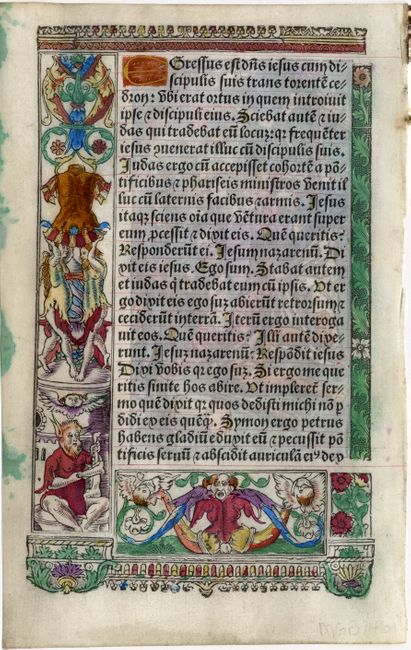 Egressus est dñs iesus cum di⸗
scipulis suis trans torentē ce⸗
dron: vbi erat ortus in quem introiuit
ipse ⁊ discipuli eius. Sciebat autē ⁊ iu⸗
das qui tradebat eū locuꝫ: qꝛ frequēter
iesus ꝯuenerat illuc cū discipulis suis.
Judas ergo cū accepisset cohortē a pō⸗
tificibus ⁊ phariseis ministros venit il⸗
luc cū laternis facibus ⁊ armis. Jesus
itaqꝫ sciens oīa que vētura erant super
eum ꝓcessit ⁊ dixit eis. Quē queritis?
Responderūt ei. Jesum nazarenū. Di⸗
xit eis iesus. Ego sum. Stabat autem
et iudas q̄ tradebat eum cū ipsis. Vt er⸗
go dixit eis ego suꝫ abierūt retrorsum ⁊
ceciderūt in terrā. Iterū ergo interoga
uit eos. Quē queritis? Illi autē dixe⸗
runt. Jesuꝫ nazarenū: Respōdit iesus
Dixi vobis qꝛ ego suꝫ. Si ergo me que⸗
ritis sinite hos abire. Vt impleret̄ ser⸗
mo quē dixit qꝛ quos dedisti michi nō ꝑ
didi ex eis quēꝗ̄. Symon ergo petrus
habens gladiū eduxit eū ⁊ percussit pō⸗
tificis seruū ⁊ abscidit auriculā eiꝰ dex